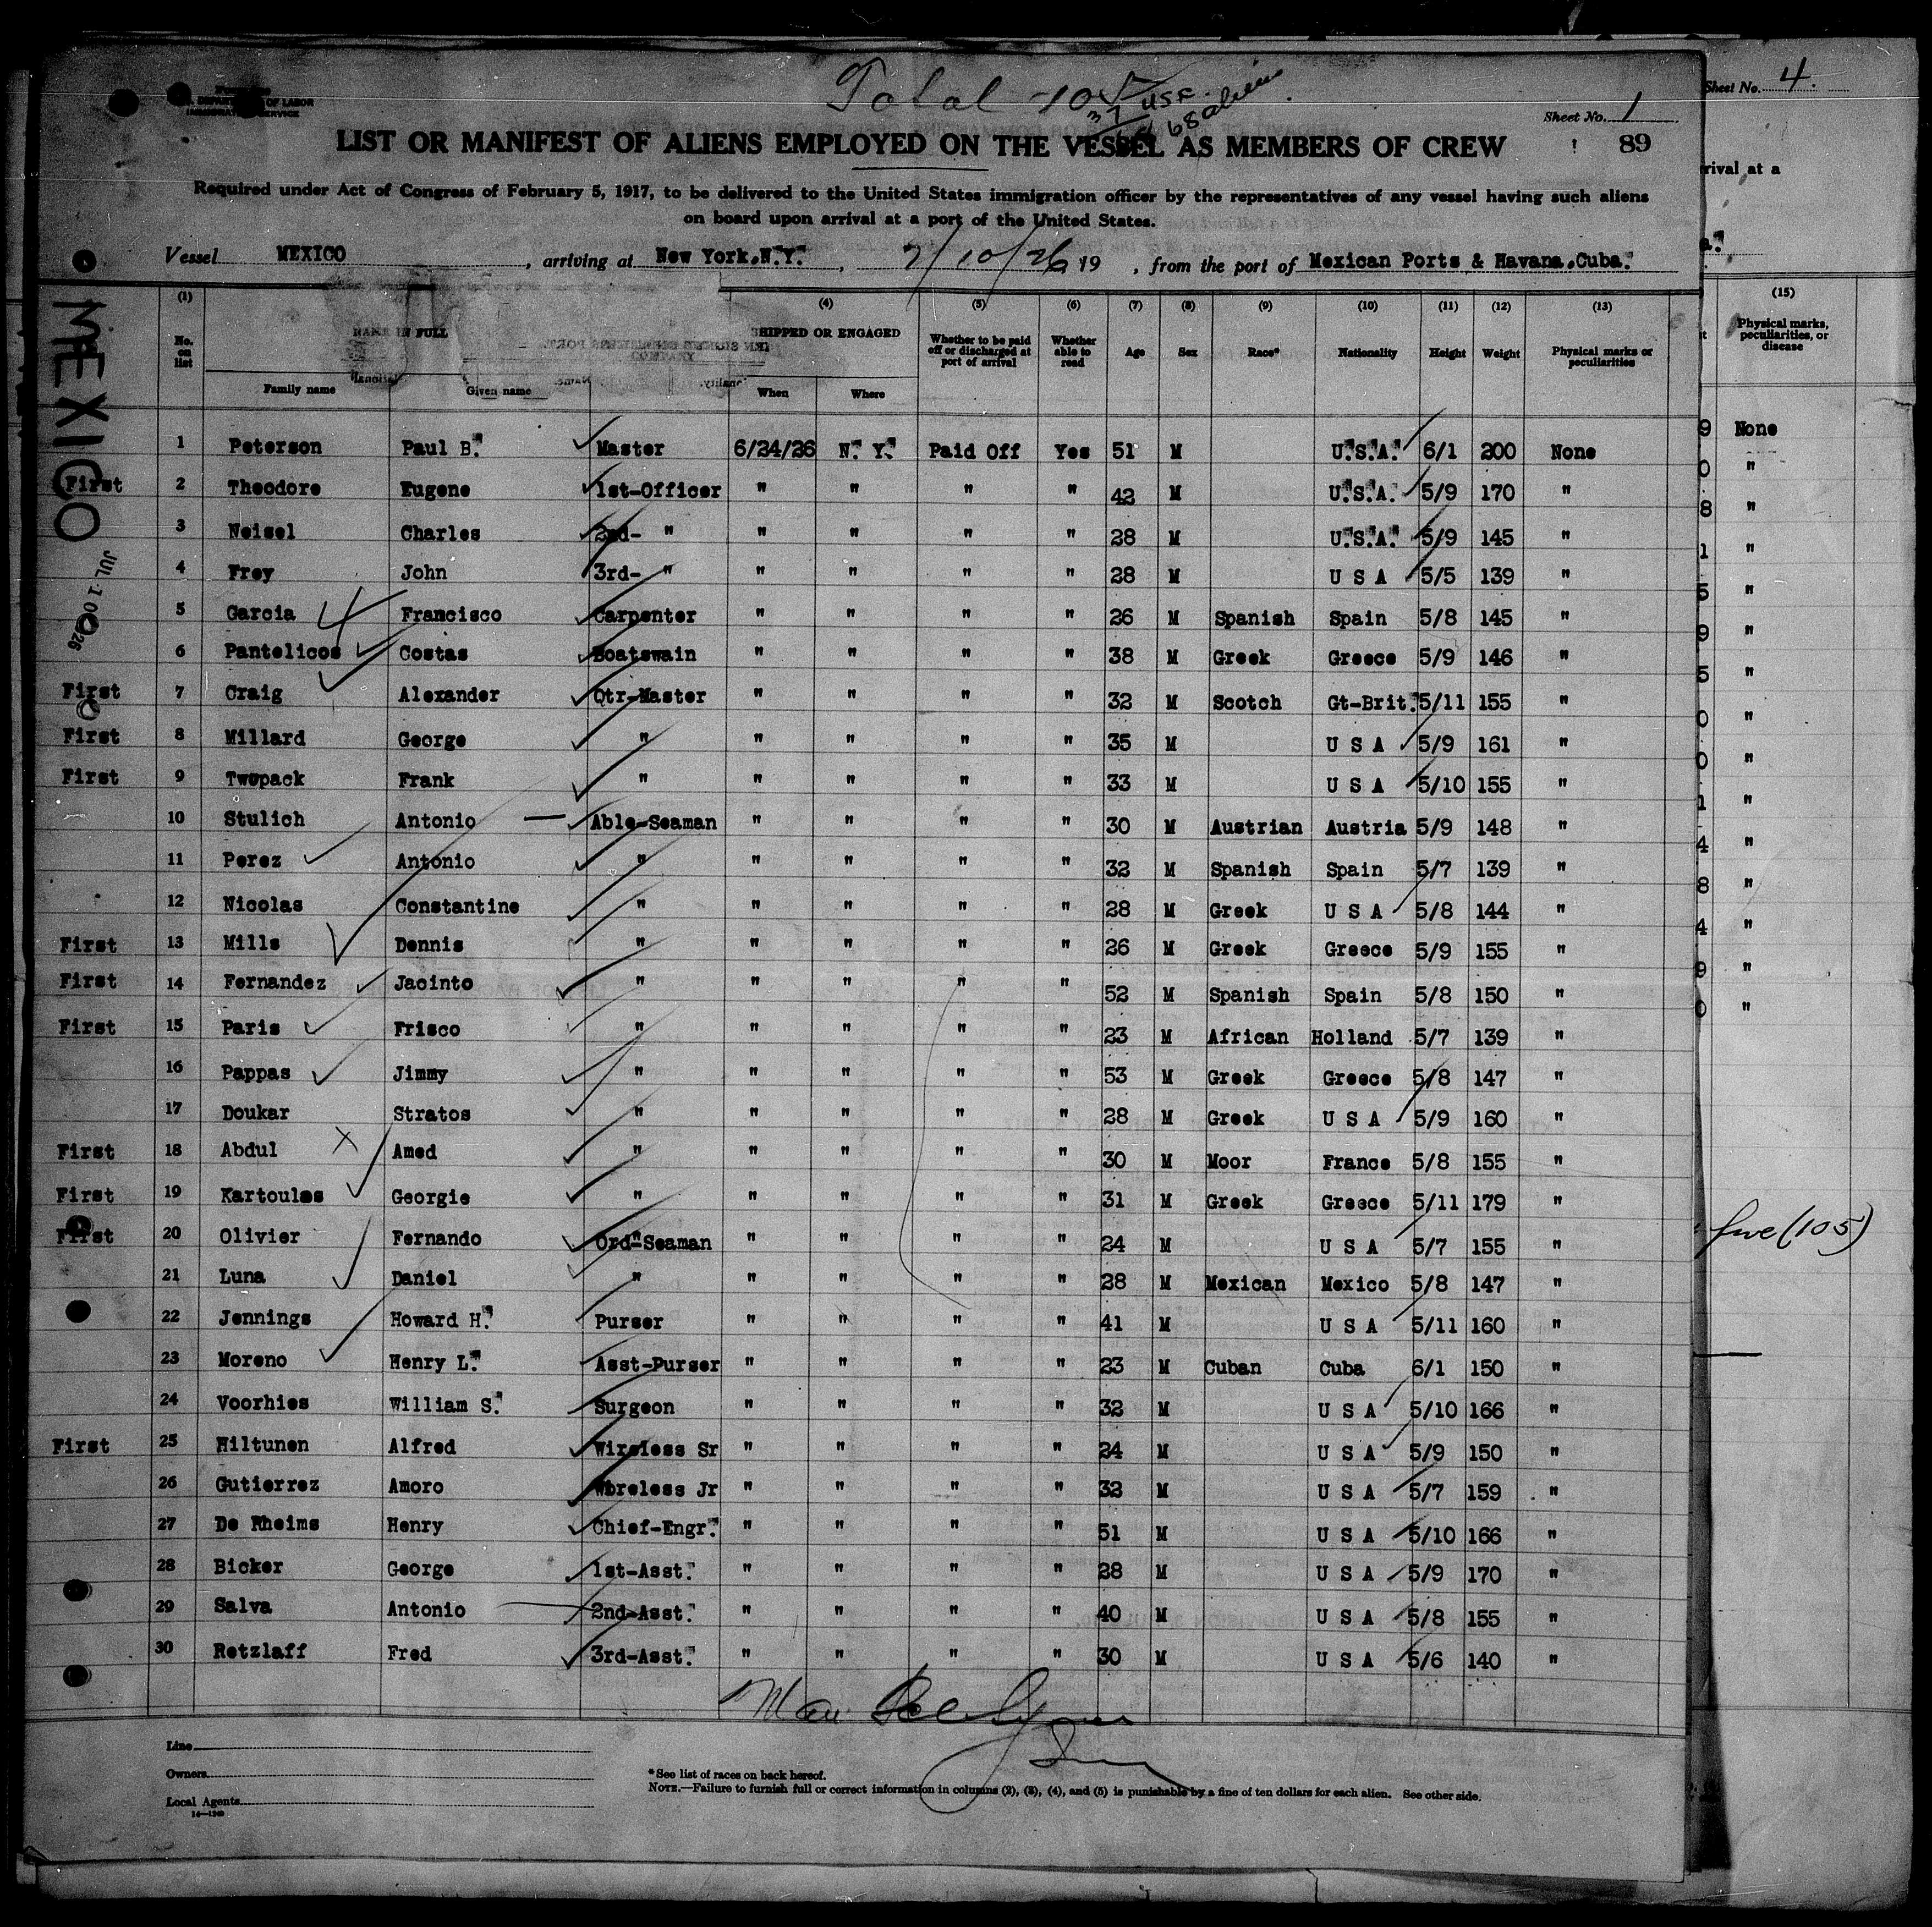 Total 105
37 USC.
68 aliens
Sheet No. 4
Sheet No. 1
OF LABOR
IMMIGRATION SERVICE
LIST OR MANIFEST OF ALIENS EMPLOYED ON THE VESSEL AS MEMBERS OF CREW
89
Required under Act of Congress of February 5, 1917, to be delivered to the United States immigration officer by the representatives of any vessel having such aliens
on board upon arrival at a port of the United States.
rival at a
Vessel MEXICO, arriving at New York, N.Y., 7/10/26 19, from the port of Mexican Ports & Havana, Cuba.
MEXICO
JUL 10 1926
(1) (4) (5) (6) (7) (8) (9) (10) (11) (12) (13) (15)
No. on list NAME IN FULL SHIPPED OR ENGAGED Whether to be paid off or discharged at port of arrival Whether able to read Age Sex Race* Nationality Height Weight Physical marks or peculiarities Physical marks, peculiarities, or disease
Family name Given name When Where
1 Peterson Paul B. Master 6/24/26 N. Y. Paid Off Yes 51 M U.S.A. 6/1 200 None
First 2 Theodore Eugene 1st-Officer " " " " 42 M U.S.A. 5/9 170 "
3 Neisel Charles 2nd- " " " " " 28 M U.S.A. 5/9 145 "
4 Frey John 3rd- " " " " " 28 M U S A 5/5 139 "
5 Garcia Francisco Carpenter " " " " 26 M Spanish Spain 5/8 145 "
6 Pantelicos Costas Boatswain " " " " 38 M Greek Greece 5/9 146 "
First 7 Craig Alexander Qtr-Master " " " " 32 M Scotch Gt-Brit. 5/11 155 "
First 8 Millard George " " " " " 35 M U S A 5/9 161 "
First 9 Twopack Frank " " " " " 33 M U S A 5/10 155 "
10 Stulich Antonio Able-Seaman " " " " 30 M Austrian Austria 5/9 148 "
11 Perez Antonio " " " " " 32 M Spanish Spain 5/7 139 "
12 Nicolas Constantine " " " " " 28 M Greek U S A 5/8 144 "
First 13 Mills Dennis " " " " " 26 M Greek Greece 5/9 155 "
First 14 Fernandez Jacinto " " " " " 52 M Spanish Spain 5/8 150 "
First 15 Paris Frisco " " " " " 23 M African Holland 5/7 139 "
16 Pappas Jimmy " " " " " 53 M Greek Greece 5/8 147 "
17 Doukar Stratos " " " " " 28 M Greek U S A 5/9 160 "
First 18 Abdul Amed " " " " " 30 M Moor France 5/8 155 "
First 19 Kartoulas Georgie " " " " " 31 M Greek Greece 5/11 179 "
First 20 Olivier Fernando Ord"Seaman " " " " 24 M U S A 5/7 155 "
21 Luna Daniel " " " " " 28 M Mexican Mexico 5/8 147 "
22 Jennings Howard H. Purser " " " " 41 M U S A 5/11 160 "
23 Moreno Henry L. Asst-Purser " " " " 23 M Cuban Cuba 6/1 150 "
24 Voorhies William S. Surgeon " " " " 32 M U S A 5/10 166 "
First 25 Hiltunen Alfred Wireless Sr " " " " 24 M U S A 5/9 150 "
26 Gutierrez Amoro Wireless Jr " " " " 32 M U S A 5/7 159 "
27 De Rheims Henry Chief-Engr. " " " " 51 M U S A 5/10 166 "
28 Bicker George 1st-Asst. " " " " 28 M U S A 5/9 170 "
29 Salva Antonio 2nd-Asst. " " " " 40 M U S A 5/8 155 "
30 Retzlaff Fred 3rd-Asst. " " " " 30 M U S A 5/6 140 "
None
five (105)
Line
Owners
Local Agents
14—1240
*See list of races on back hereof.
NOTE.—Failure to furnish full or correct information in columns (2), (3), (4), and (5) is punishable by a fine of ten dollars for each alien. See other side.